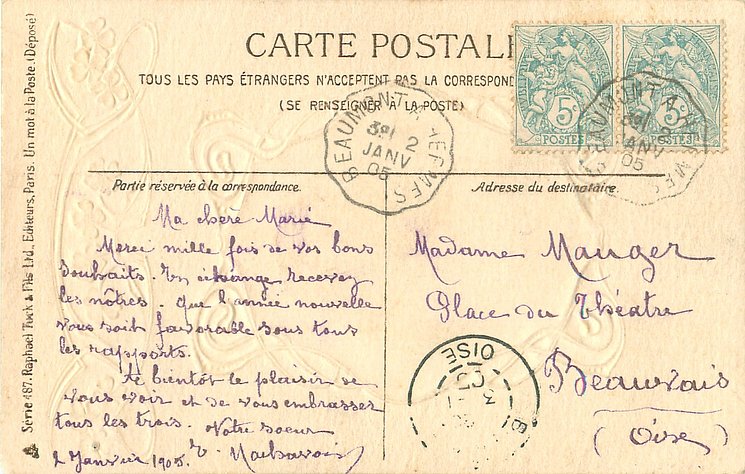 CARTE POSTALE
TOUS LES PAYS ÉTRANGERS N'ACCEPTENT PAS LA CORRESPOND
(SE RENSEIGNER A LA POSTE)
Partie réservée à la correspondance.
Adresse du destinataire.
Ma chère Marie
Merci mille fois de vos bons
souhaits. En échange recevez
les nôtres. Que l'année nouvelle
vous soit favorable sous tous
les rapports.
A bientôt le plaisir de
vous voir et de vous embrasser
tous les trois. Votre soeur
2 Janvier 1905. E.
Madame Mauger
Place du Théatre
Beauvais
(Oise)
Série 467. Raphael Tuck & Fils Ltd., Editeurs, Paris. Un mot à la Poste. (Déposé)
5c
POSTES
5c
POSTES
BEAUMONT A HERMES
2
JANV
05
BEAUMONT A HERMES
2
JANV
05
OISE